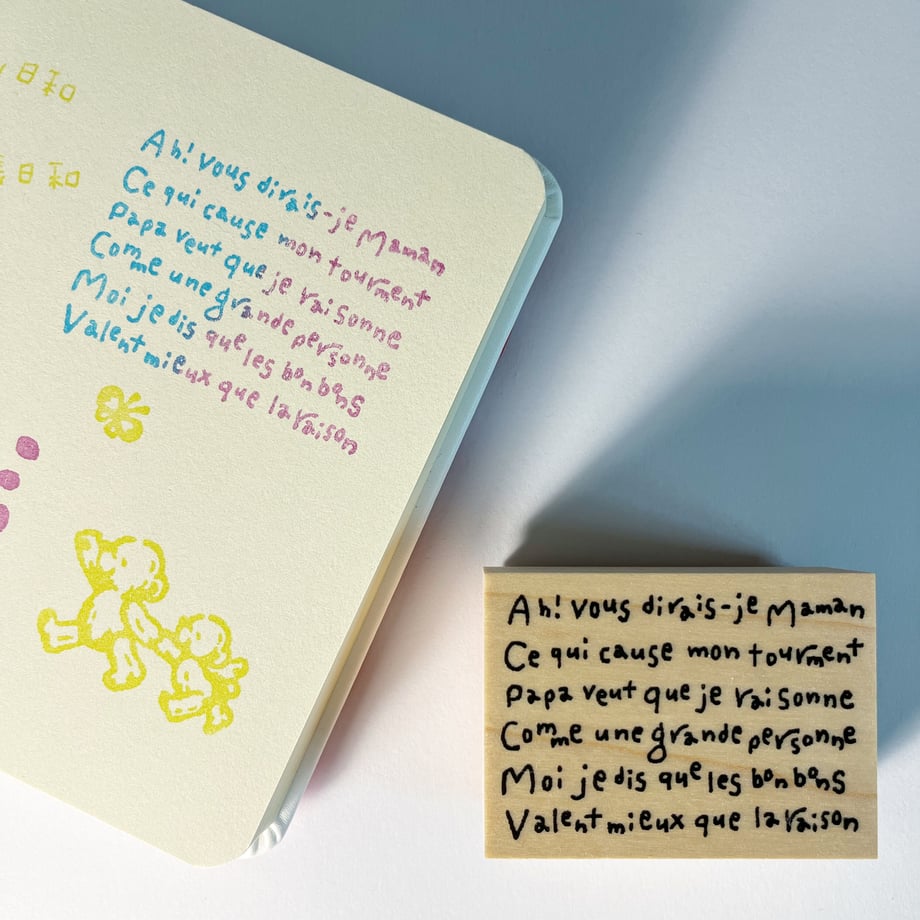 日和
日和
Ah! vous dirais-je Maman
Ce qui cause mon tourment
Papa veut que je raisonne
Comme une grande personne
Moi je dis que les bonbons
Valent mieux que la raison
Ah! vous dirais-je Maman
Ce qui cause mon tourment
Papa veut que je raisonne
Comme une grande personne
Moi je dis que les bonbons
Valent mieux que la raison